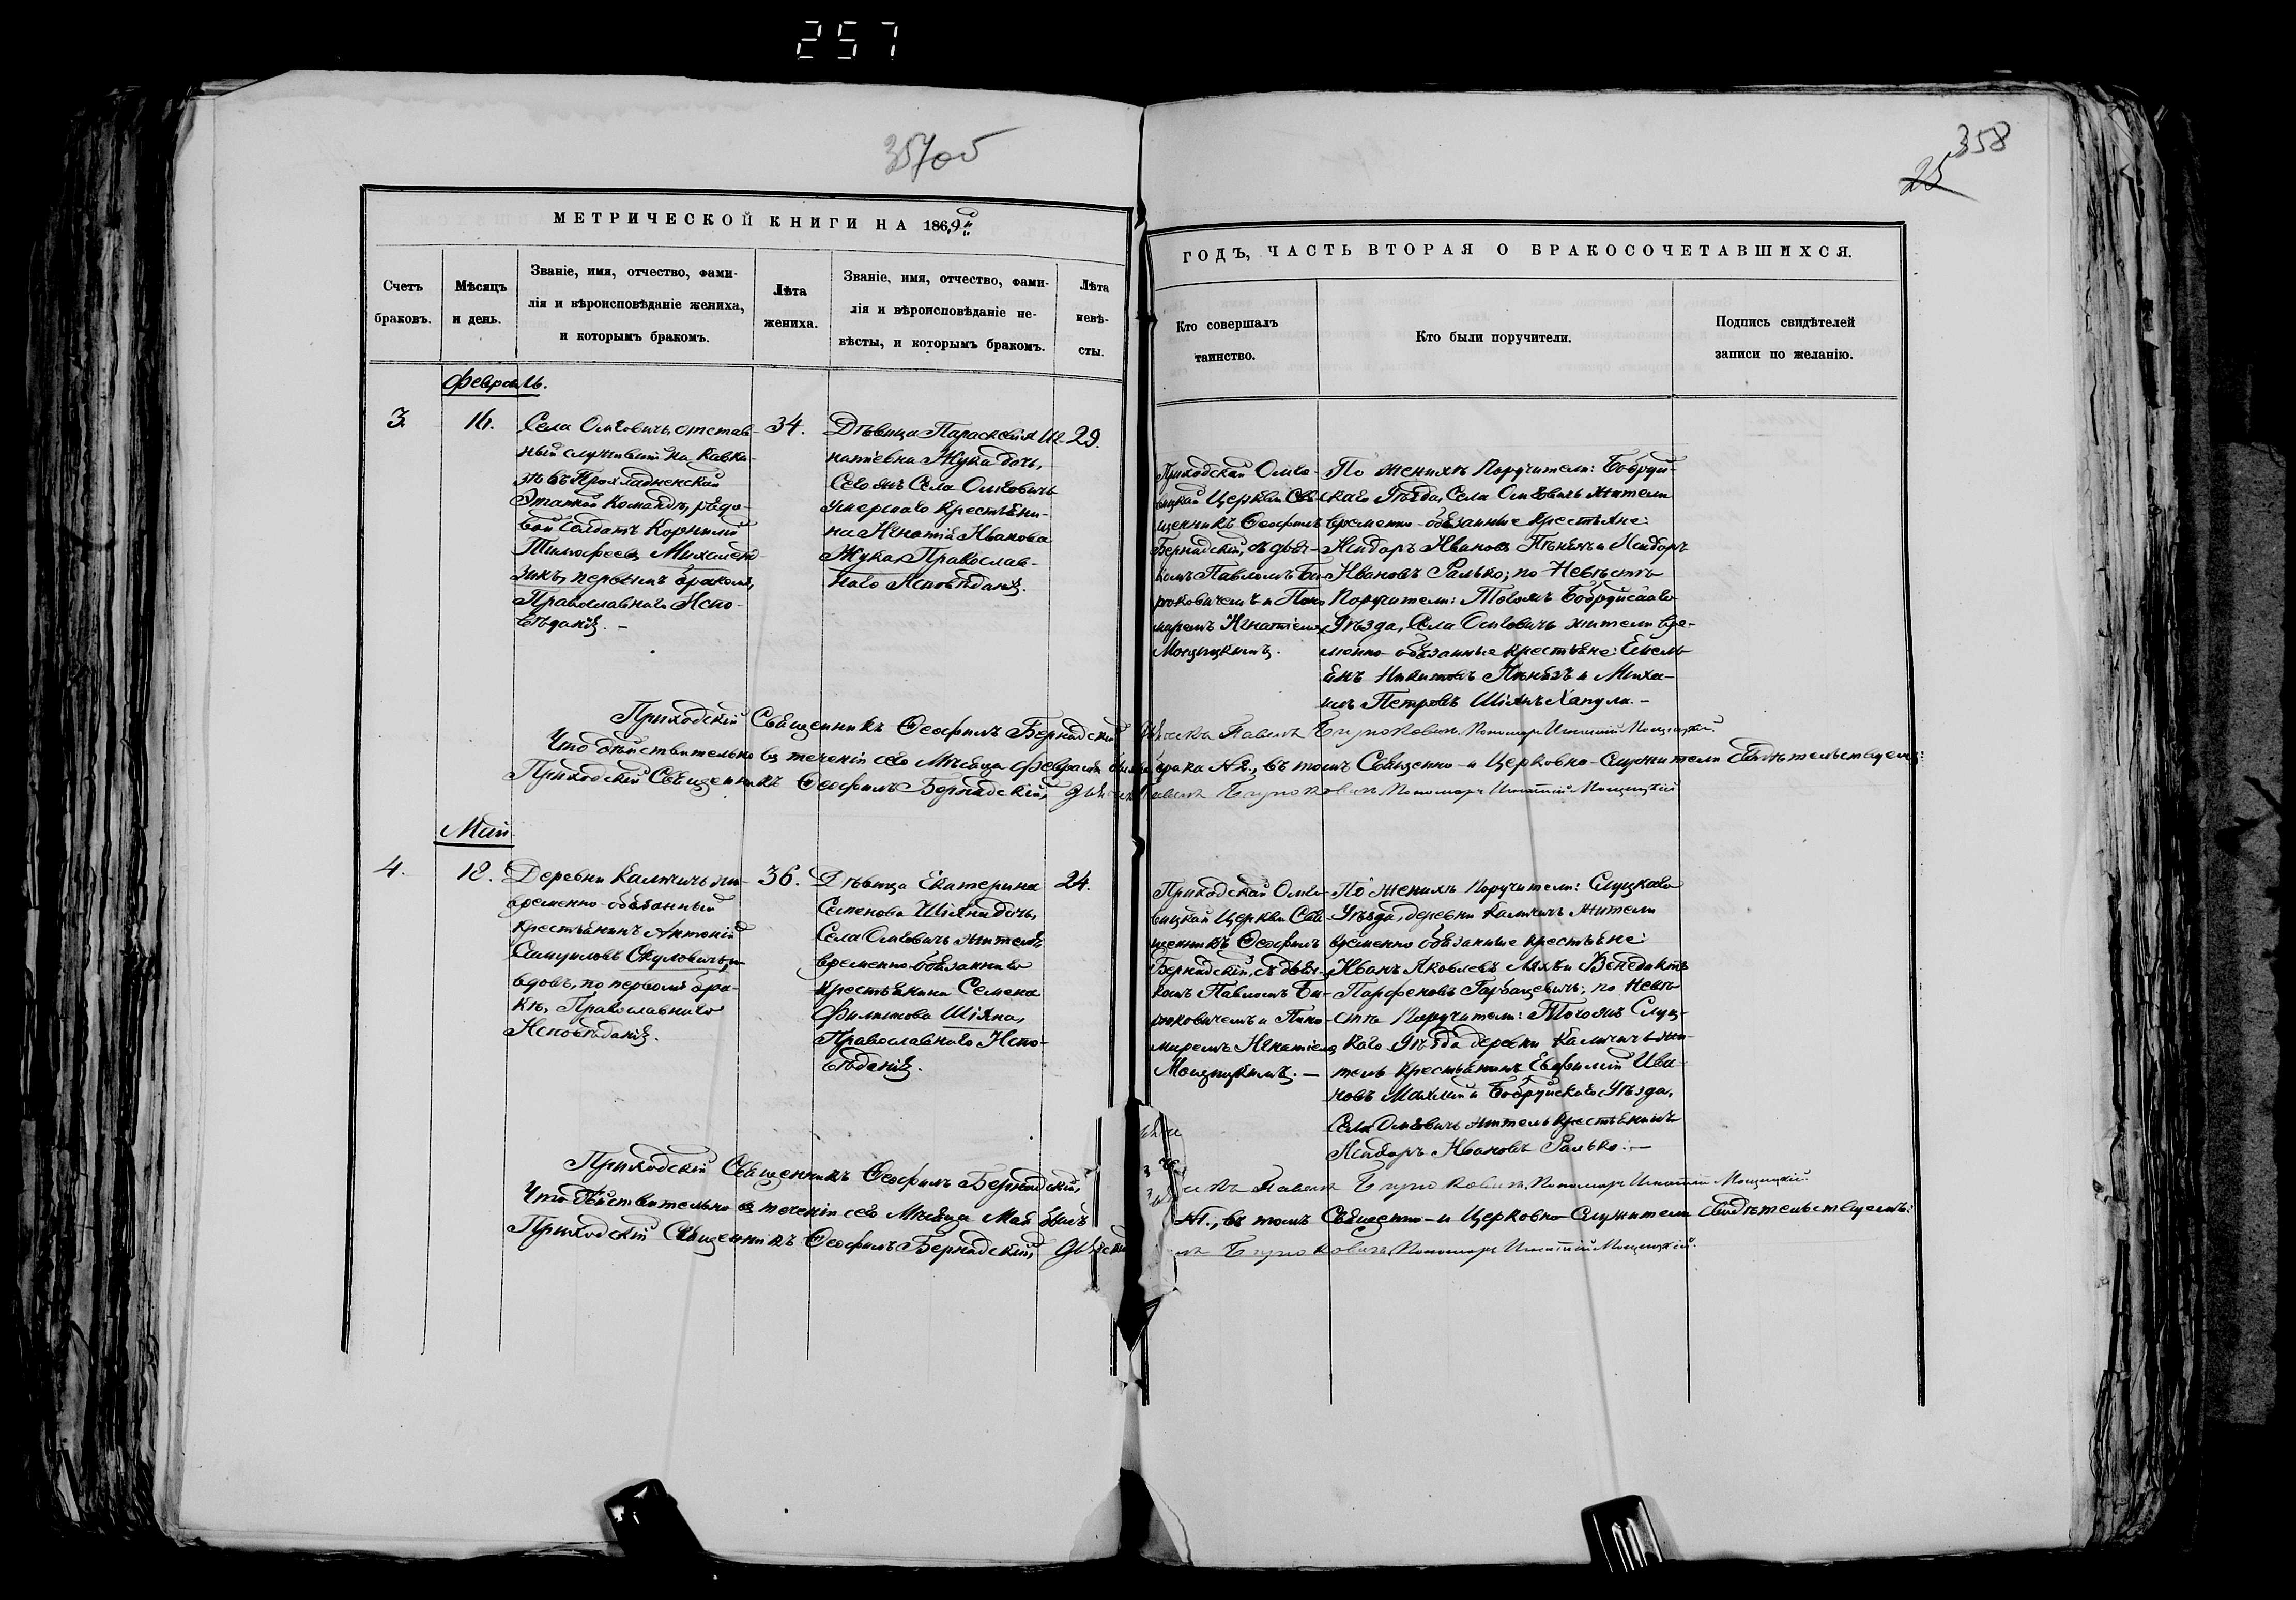 257
357об
358
25
МЕТРИЧЕСКОЙ КНИГИ НА 1869й
ГОДЪ, ЧАСТЬ ВТОРАЯ О БРАКОСОЧЕТАВШИХСЯ.
Счетъ
браковъ.
Мѣсяцъ
и день.
Званіе, имя, отчество, фами-
лія и вѣроисповѣданіе жениха,
и которымъ бракомъ.
Лѣта
жениха.
Званіе, имя, отчество, фами-
лія и вѣроисповѣданіе не-
вѣсты, и которымъ бракомъ.
Лѣта
невѣ-
сты.
Кто совершалъ
таинство.
Кто были поручители.
Подпись свидѣтелей
записи по желанію.
Февраль.
3.
16.
Села Омговичъ отстав-
ный служившій на Кавка-
зѣ въ Прохладненской
Этапной Командѣ, рядо-
вой Солдатъ Корнилій
Тимофеевъ
первымъ бракомъ,
Православнаго Испо-
вѣданія. –
34.
Дѣвица Параскевія Иг-
натіевна Жука дочь,
Сего жъ Села Омговичъ
умершаго крестьяни-
на Игнатія Иванова
Жука, Православ-
наго Исповѣданія.
29.
Приходской Омго-
вицкой Церкви Свя-
щенникъ Ѳеофилъ
Бернадскій, съ дьяч-
комъ Павломъ Би-
рюковичемъ и Поно-
маремъ Игнатіемъ
Мощицкимъ.
По женихѣ Поручители: Бобруй-
скаго Уѣзда, Села Омговичъ жители
временно-обязанные крестьяне:
Исидоръ Ивановъ и Исидоръ
Ивановъ Ралько; по Невѣстѣ
Поручители: Тогожъ Бобруйскаго
Уѣзда, Села Омговичъ жители вре-
менно-обязанные крестьяне: Емель-
янъ Никитовъ и Миха-
илъ Петровъ Шіянъ Хапула. –
Приходскій Священникъ Ѳеофилъ Бернадскій Дьячекъ Павелъ Бирюковичъ. Пономарь Игнатій Мощицкій.
Что дѣйствительно въ теченіи сего Мѣсяца Февраля было брака №2., въ томъ Священно-и Церковно-Служители Свидѣтельствуемъ:
Приходскій Священникъ Ѳеофилъ Бернадскій, дьячекъ Павелъ Бирюковичъ Пономарь Игнатій Мощицкій
Май
4.
18.
Деревни Калничъ жи-
временно-обязанный
Крестьянинъ Антоній
Самуиловъ Окуловичъ,
вдовъ, по первомъ бра-
кѣ, Православнаго
Исповѣданія.
36.
Дѣвица Екатерина
Семенова Шіяна дочь,
Села Омговичъ жителя
временно-обязаннаго
крестьянина Семена
Филипова Шіяна,
Православнаго Испо-
вѣданія.
24.
Приходской Омго-
вицкой Церкви Свя-
щенникъ Ѳеофилъ
Бернадскій, съ дьяч-
комъ Павломъ Би-
рюковичемъ и Поно-
маремъ Игнатіемъ
Мощицкимъ. –
По женихѣ Поручители: Слуцкаго
Уѣзда, деревни Калничъ жители
временно обязанные крестьяне:
Иванъ Яковлевъ и Венедиктъ
Парфеновъ Гарбацевичъ; по Невѣ-
стѣ Поручители: Тогожъ Слуц-
каго Уѣзда деревни Калничъ жи-
тель крестьянинъ Евфимій Ива-
новъ и Бобруйскаго Уѣзда,
Села Омговичъ житель крестьянинъ
Исидоръ Ивановъ Ралько. –
Приходскій Священникъ Ѳеофилъ Бернадскій, Павелъ Бирюковичъ, Пономарь Игнатій Мощицкій.
Что дѣйствительно въ теченіи сего Мѣсяца Май былъ №1., въ томъ Священно-и Церковно-Служители Свидѣтельствуемъ:
Приходскій Священникъ Ѳеофилъ Бернадскій, Бирюковичъ, Пономарь Игнатій Мощицкій.